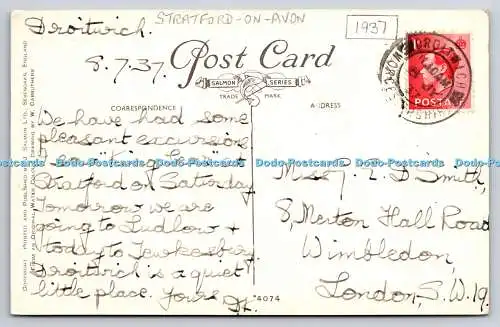 STRATFORD-ON-AVON
1937
Droitwich.
8.7.37.
Post Card
SALMON SERIES
TRADE MARK
CORRESPONDENCE
ADDRESS
We have had some
pleasant excursions
Stratford on Saturday
Tomorrow we are
going to Ludlow &
today to Tewkesbury.
Droitwich is a quiet
little place. Yours
Miss P. E. D Smith,
8, Merton Hall Road
Wimbledon,
London, S.W.19.
POSTA
*4074
COPYRIGHT PRINTED AND PUBLISHED BY J. SALMON LTD., SEVENOAKS, ENGLAND
FROM AN ORIGINAL WATER COLOUR DRAWING BY W. CARRUTHERS
Dodo-Postcards.com Dodo-Postcards.com Dodo-Postcards.com Dodo-Postcards.com